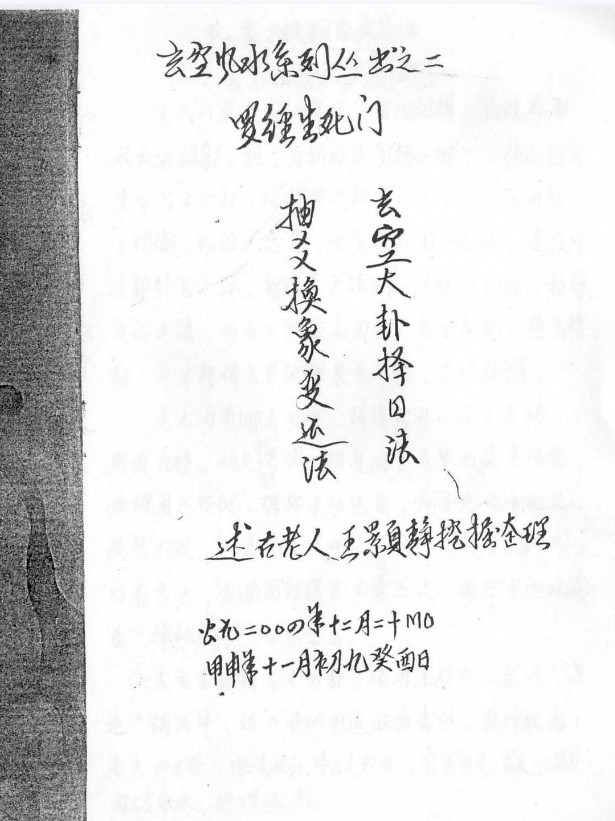 玄空风水系列丛书之二
罗经生死门
玄空大卦择日法
抽爻换象变运法
述古老人王颢静挖掘整理
公元二00四年十二月二十日
甲申年十一月初九癸酉日